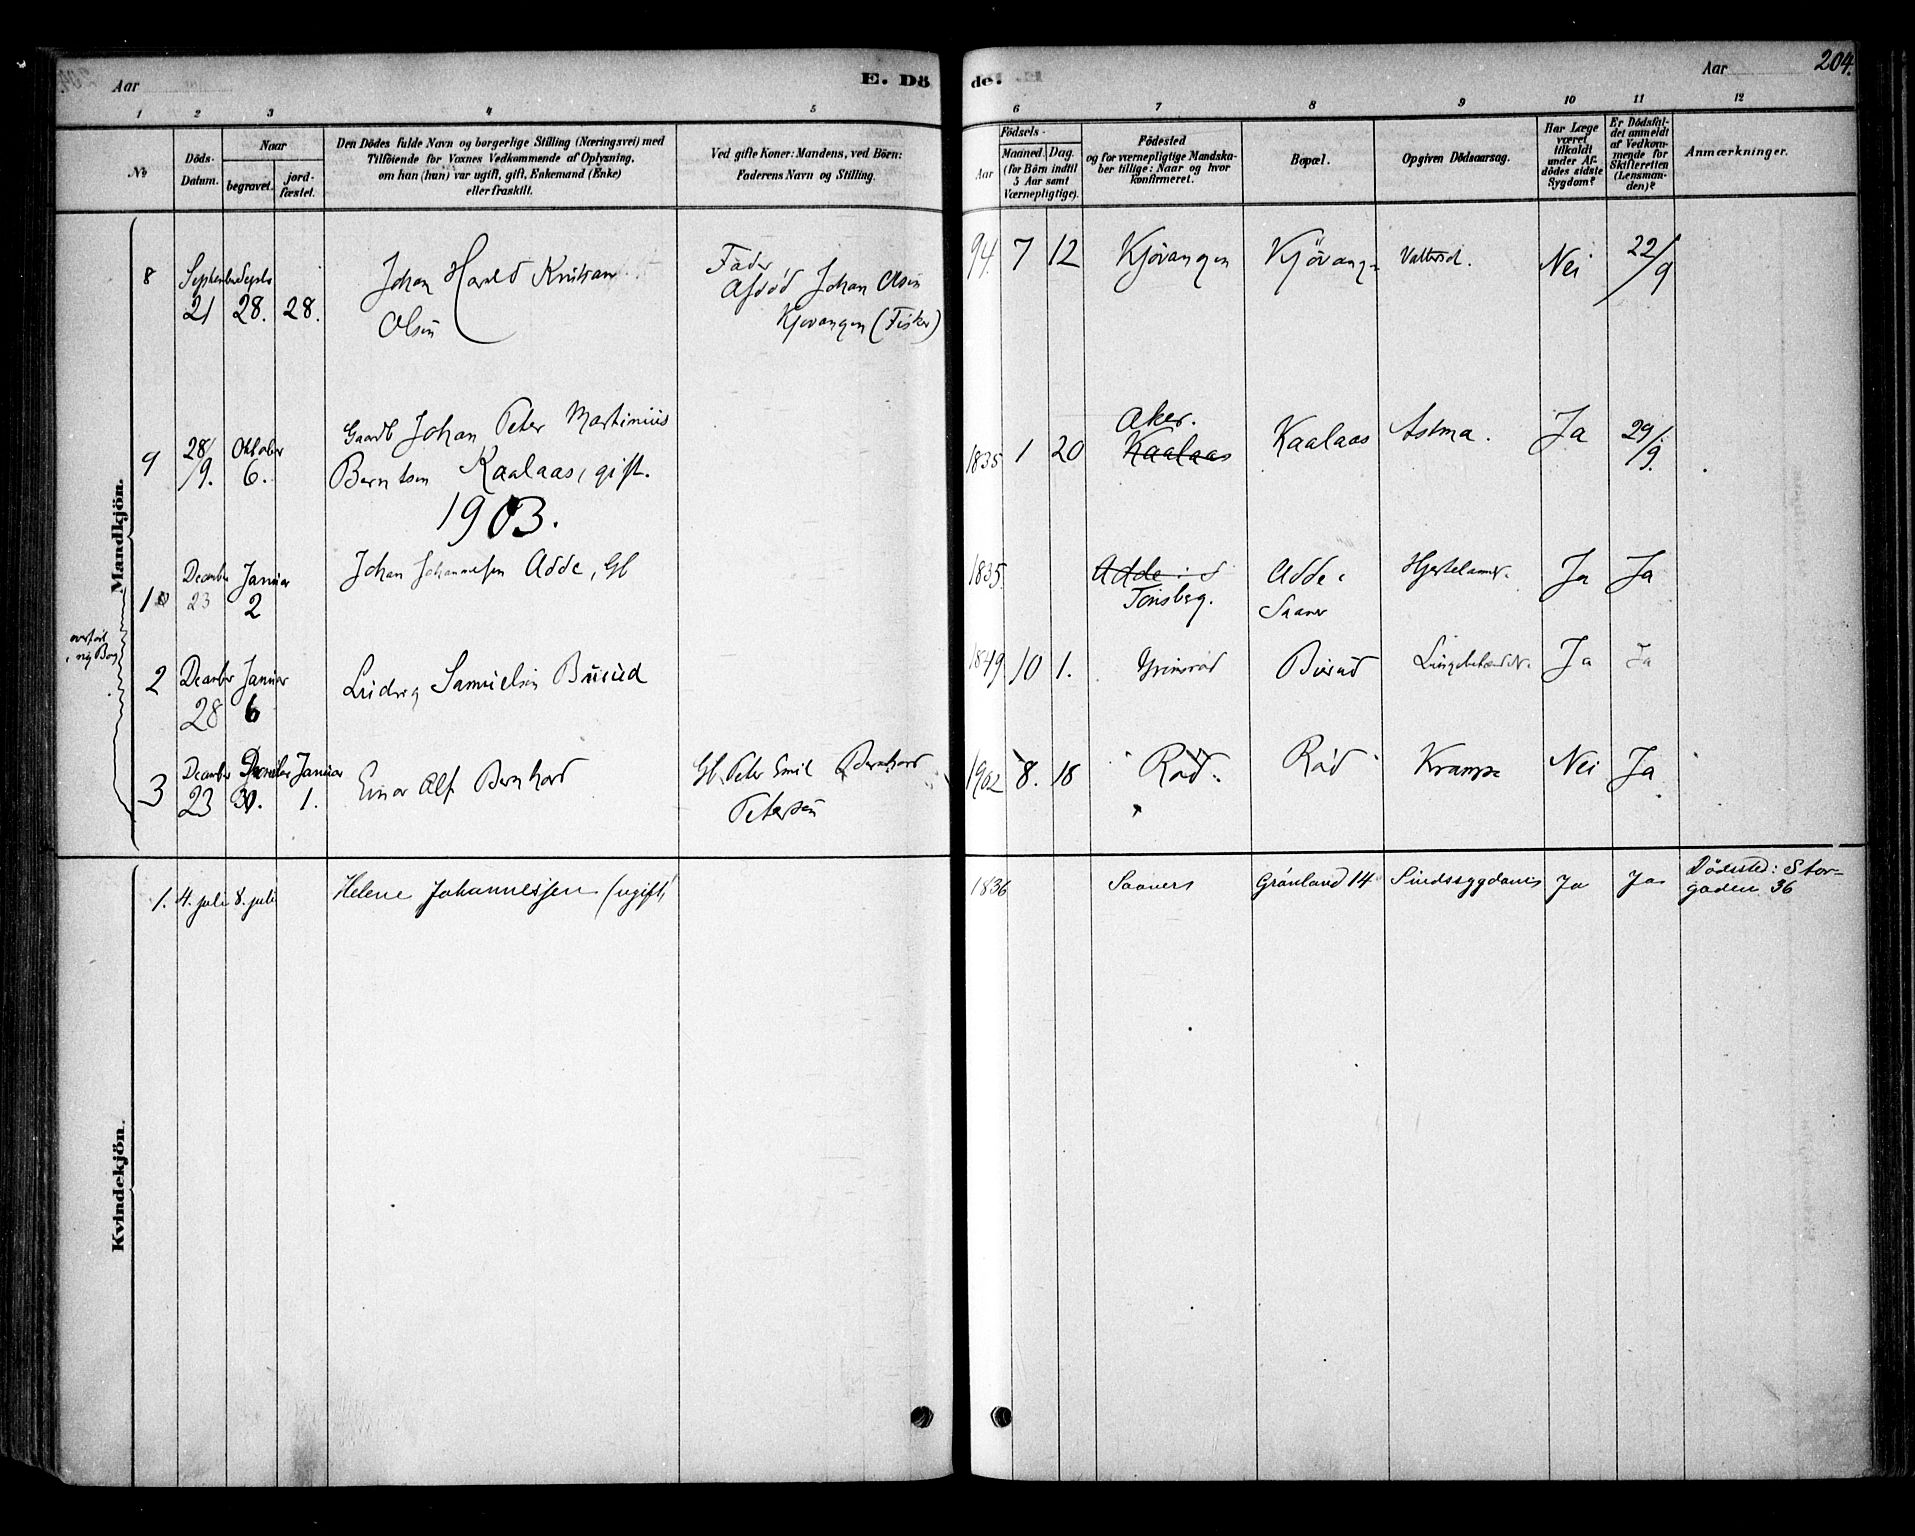 204.
Aar E. Dö
de. Aar
1 2 3 4 5 6 7 8 9 10 11 12
No
Döds-
Datum.
Naar
begravet.
jord-
fæstet.
Den Dödes fulde Navn og borgerlige Stilling (Næringsvei) med
Tilföiende for Voxnes Vedkommende af Oplysning,
om han (hun) var ugift, gift, Enkemand (Enke)
eller fraskilt.
Ved gifte Koner: Mandens, ved Börn:
Faderens Navn og Stilling.
Födsels-
Aar
Maaned. Dag.
(for Börn indtil
5 Aar samt
Værnepligtige).
Födested
og for værnepligtige Mandska-
ber tillige: Naar og hvor
konfirmeret.
Bopæl.
Opgiven Dödsaarsag.
Har Læge
været
tilkaldt
under Af-
dödes sidste
Sygdom?
Er Dödsfal-
det anmeldt
af Vedkom-
mende for
Skifteretten
(Lensman-
den)?
Anmærkninger.
Mandkjön.
8 September 21 28. 28.
Johan Harald Knutsen
Olsen
Fader
Johan Olsen
Kjøvangen (Fisker)
94. 7 12 Kjøvangen Kjøvangen Nei 22/9
9 28/9. Oktober 6.
Gaardb Johan Peter Martinius
Berntsen Kaalaas, gift.
1835 1 20 Aker.
Kaalaas Kaalaas Astma. Ja 29/9.
1903.
10 December 23 Januar 2
Johan Johannesen Adde, Gb
1835. Adde i S
Tønsberg. Adde i
Saaner Ja Ja
overført
i ny Bog
2 December 28 Januar 6
Ludvig Samuelsen Busud
1849 10 1. Busud Ja Ja
3 December 23 December 30. Januar 1.
Einar Alf Bernhard
Gb. Peter Emil Bernhard
Petersen
1902 8. 18 Rød. Rød Krampe Nei Ja
Kvindekjön.
1. 4. juli 8. juli Helene Johannessen (ugift)
1836 Saaners Grønland 14 Sindssygdom Ja Ja Dödssted: Stor-
gaden 36